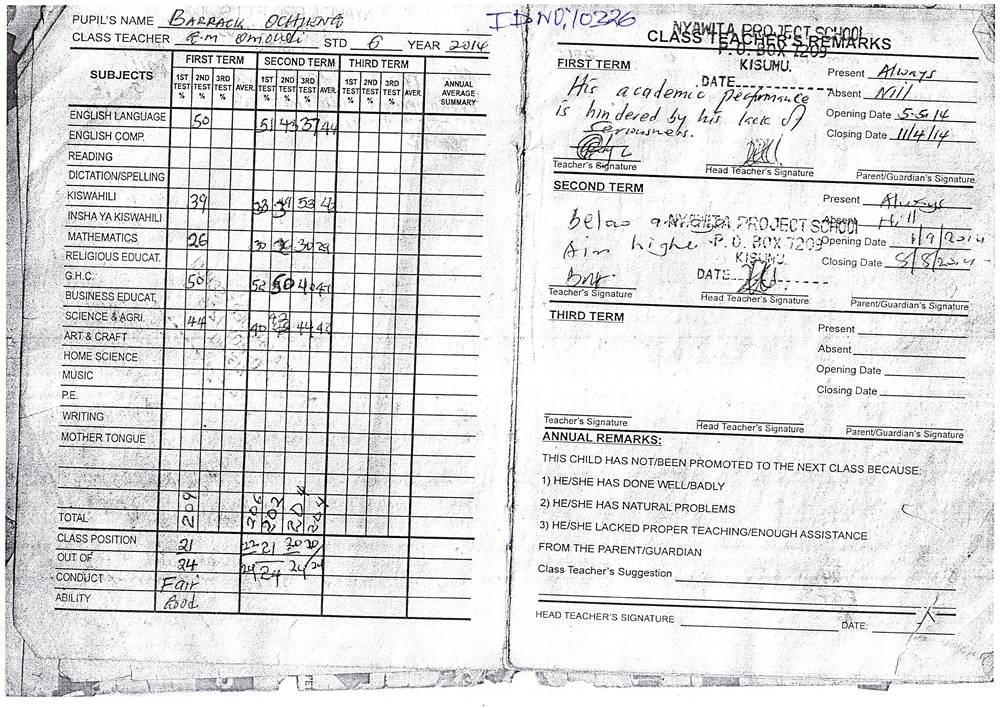 PUPIL'S NAME BARRACK OCHIENG
CLASS TEACHER G.M Omondi STD 6 YEAR 2014
SUBJECTS FIRST TERM SECOND TERM THIRD TERM ANNUAL AVERAGE SUMMARY
1ST TEST % 2ND TEST % 3RD TEST % AVER. 1ST TEST % 2ND TEST % 3RD TEST % AVER. 1ST TEST % 2ND TEST % 3RD TEST % AVER.
ENGLISH LANGUAGE 50 51 43 37 44
ENGLISH COMP.
READING
DICTATION/SPELLING
KISWAHILI 39 53
INSHA YA KISWAHILI
MATHEMATICS 26 30 30 29
RELIGIOUS EDUCAT.
G.H.C. 50 52 50
BUSINESS EDUCAT,
SCIENCE & AGRI. 44 40 44 43
ART & CRAFT
HOME SCIENCE
MUSIC
P.E.
WRITING
MOTHER TONGUE
TOTAL 209 206 202 204 204
CLASS POSITION 21 22 21 20 20
OUT OF 24 24 24 24 24
CONDUCT Fair
ABILITY Good
ID NO; 10226
NYAWITA PROJECT SCHOOL
CLASS TEACHER'S REMARKS
P.O. BOX 7209
KISUMU.
DATE
FIRST TERM
His academic performance
is hindered by his lack of
seriousness.
Present Always
Absent Nill
Opening Date 5.5.14
Closing Date 11/4/14
Teacher's Signature Head Teacher's Signature Parent/Guardian's Signature
SECOND TERM
Below
Aim higher
NYAWITA PROJECT SCHOOL
P.O. BOX 7209
KISUMU.
DATE
Present Always
Absent Nill
Opening Date 1/9/2014
Closing Date 8/8/2014
Teacher's Signature Head Teacher's Signature Parent/Guardian's Signature
THIRD TERM
Present
Absent
Opening Date
Closing Date
Teacher's Signature Head Teacher's Signature Parent/Guardian's Signature
ANNUAL REMARKS:
THIS CHILD HAS NOT/BEEN PROMOTED TO THE NEXT CLASS BECAUSE:
1) HE/SHE HAS DONE WELL/BADLY
2) HE/SHE HAS NATURAL PROBLEMS
3) HE/SHE LACKED PROPER TEACHING/ENOUGH ASSISTANCE
FROM THE PARENT/GUARDIAN
Class Teacher's Suggestion
HEAD TEACHER'S SIGNATURE DATE: